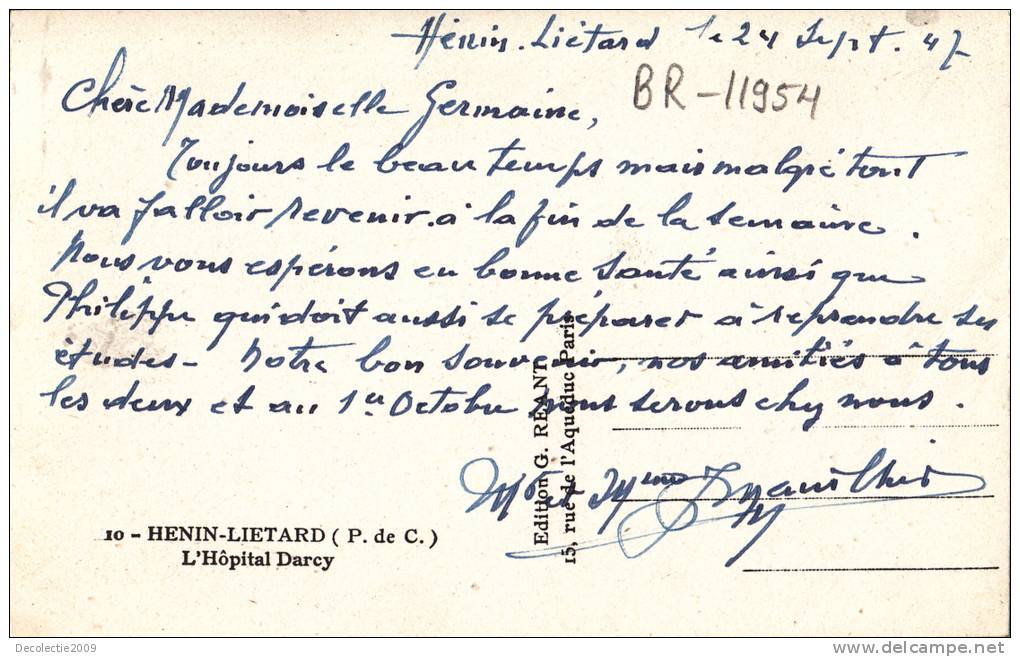 Hénin-Liétard le 24 Sept. 47
BR-11954
Chère Mademoiselle Germaine,
Toujours le beau temps mais malgré tout
il va falloir revenir à la fin de la semaine.
Nous vous espérons en bonne santé ainsi que
Philippe qui doit aussi se préparer à reprendre ses
études - Notre bon souvenir, nos amitiés à tous
les deux et au 1er Octobre nous serons chez nous.
Mr et Mme
10 - HENIN-LIETARD ( P. de C. )
L'Hôpital Darcy
Edition G. RÉANT
15, rue de l'Aqueduc Paris
Decolectie2009
delcampe.net